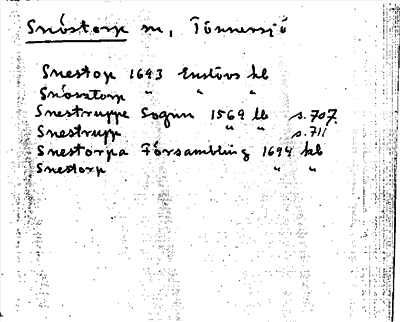 Snöstorp sn, Tönnersjö
Snestop 1693 Enslövs kb
Snösztorp " " "
Snestruppe Sogun 1569 lb s.707.
Snestrupp " " s.711
Snestorpa Försambling 1694 kb
Snestorp " "